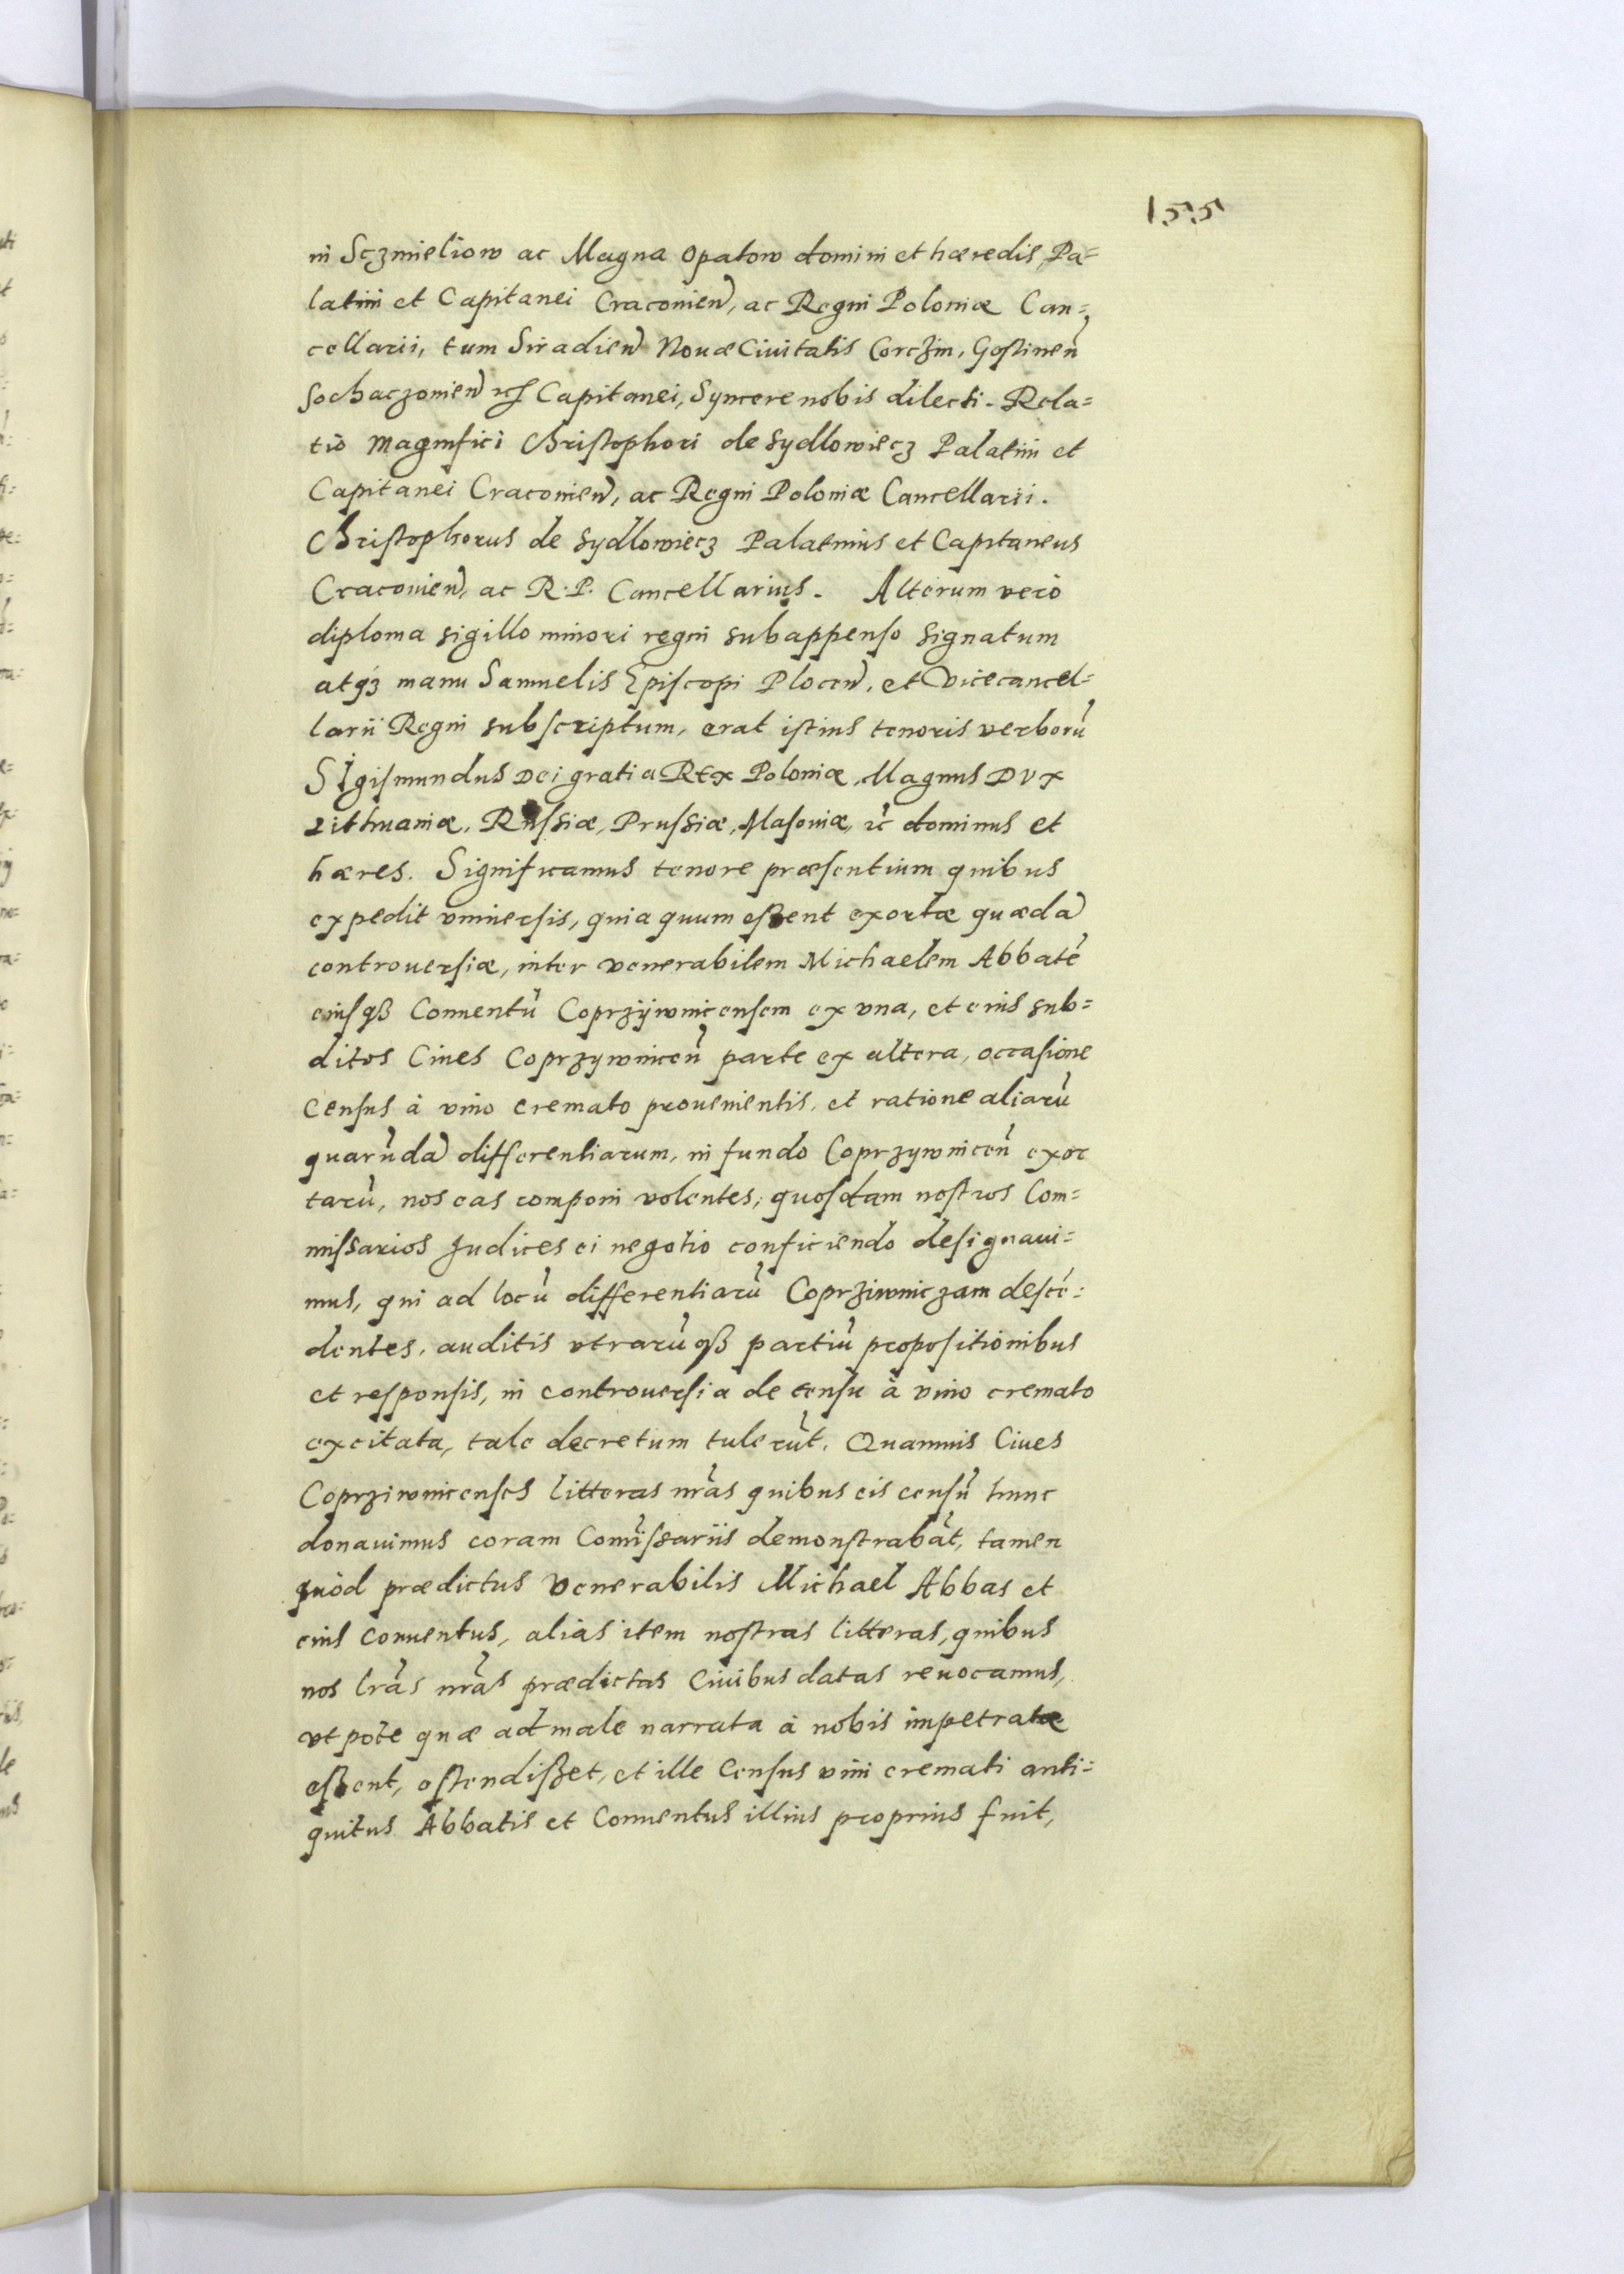 155
in Sczmieliow ac Magna Opatow domini et hæredis, Pa=
latini et Capitanei Cracouien̄, ac Regni Poloniæ Can=
cellarii, tum Siradien̄ Nouæ Ciuitatis Corczin, Gostinen̄
Sochaczouien̄ Capitanei, Syncere nobis dilecti. Rela=
tio Magnifici Christophori de Sydlowiecz Palatini et
Capitanei Cracouien̄, ac Regni Poloniæ Cancellarii.
Christophorus de Sydlowiecz Palatinus et Capitaneus
Cracouien̄, ac R. P. Cancellarius. Alterum verò
diploma sigillo minori regni subappenso signatum
atqȝ manu Samuelis Episcopi Plocen̄, et Vicecancel=
larii Regni subscriptum, erat istius tenoris verborū
SIgismundus Dei gratia REX Poloniæ, Magnus DVX
Lithuaniæ, Russiæ, Prussiæ, Masouiæ, ꝛc̄ dominus et
hæres. Significamus tenore præsentium quibus
expedit vniuersis, quia quum essent exortæ quædā
controuersiæ, inter venerabilem Michaelem Abbatē
eiusqȝ Conuentū Coprzÿwnicensem ex vna, et eius sub=
ditos Ciues Coprzywnicen̄ parte ex altera, occasione
Census à vino cremato prouenientis, et ratione aliarū
quarūdā differentiarum, in fundo Coprzywnicen̄ exor
tarū, nos eas componi volentes, quosdam nostros Com=
missarios Judices ei negotio conficiendo designaui=
mus, qui ad locū differentiarū Coprziwniczam descē=
dentes, auditis vtrarūqȝ partiū propositionibus
et responsis, in controuersia de censu à vino cremato
excitata, tale decretum tulerūt. Quamuis Ciues
Coprziwnicenses litteras nr̄as quibus eis censū hunc
donauimus coram Com̄issariis demonstrabāt, tamen
quòd prædictus Venerabilis Michael Abbas et
eius conuentus, alias item nostras litteras, quibus
nos lr̄as nr̄as prædictas Ciuibus datas reuocamus,
vt pote quæ ad male narrata à nobis impetratæ
essent, ostendisset, et ille Census vini cremati anti=
quitus Abbatis et Conuentus illius proprius fuit,